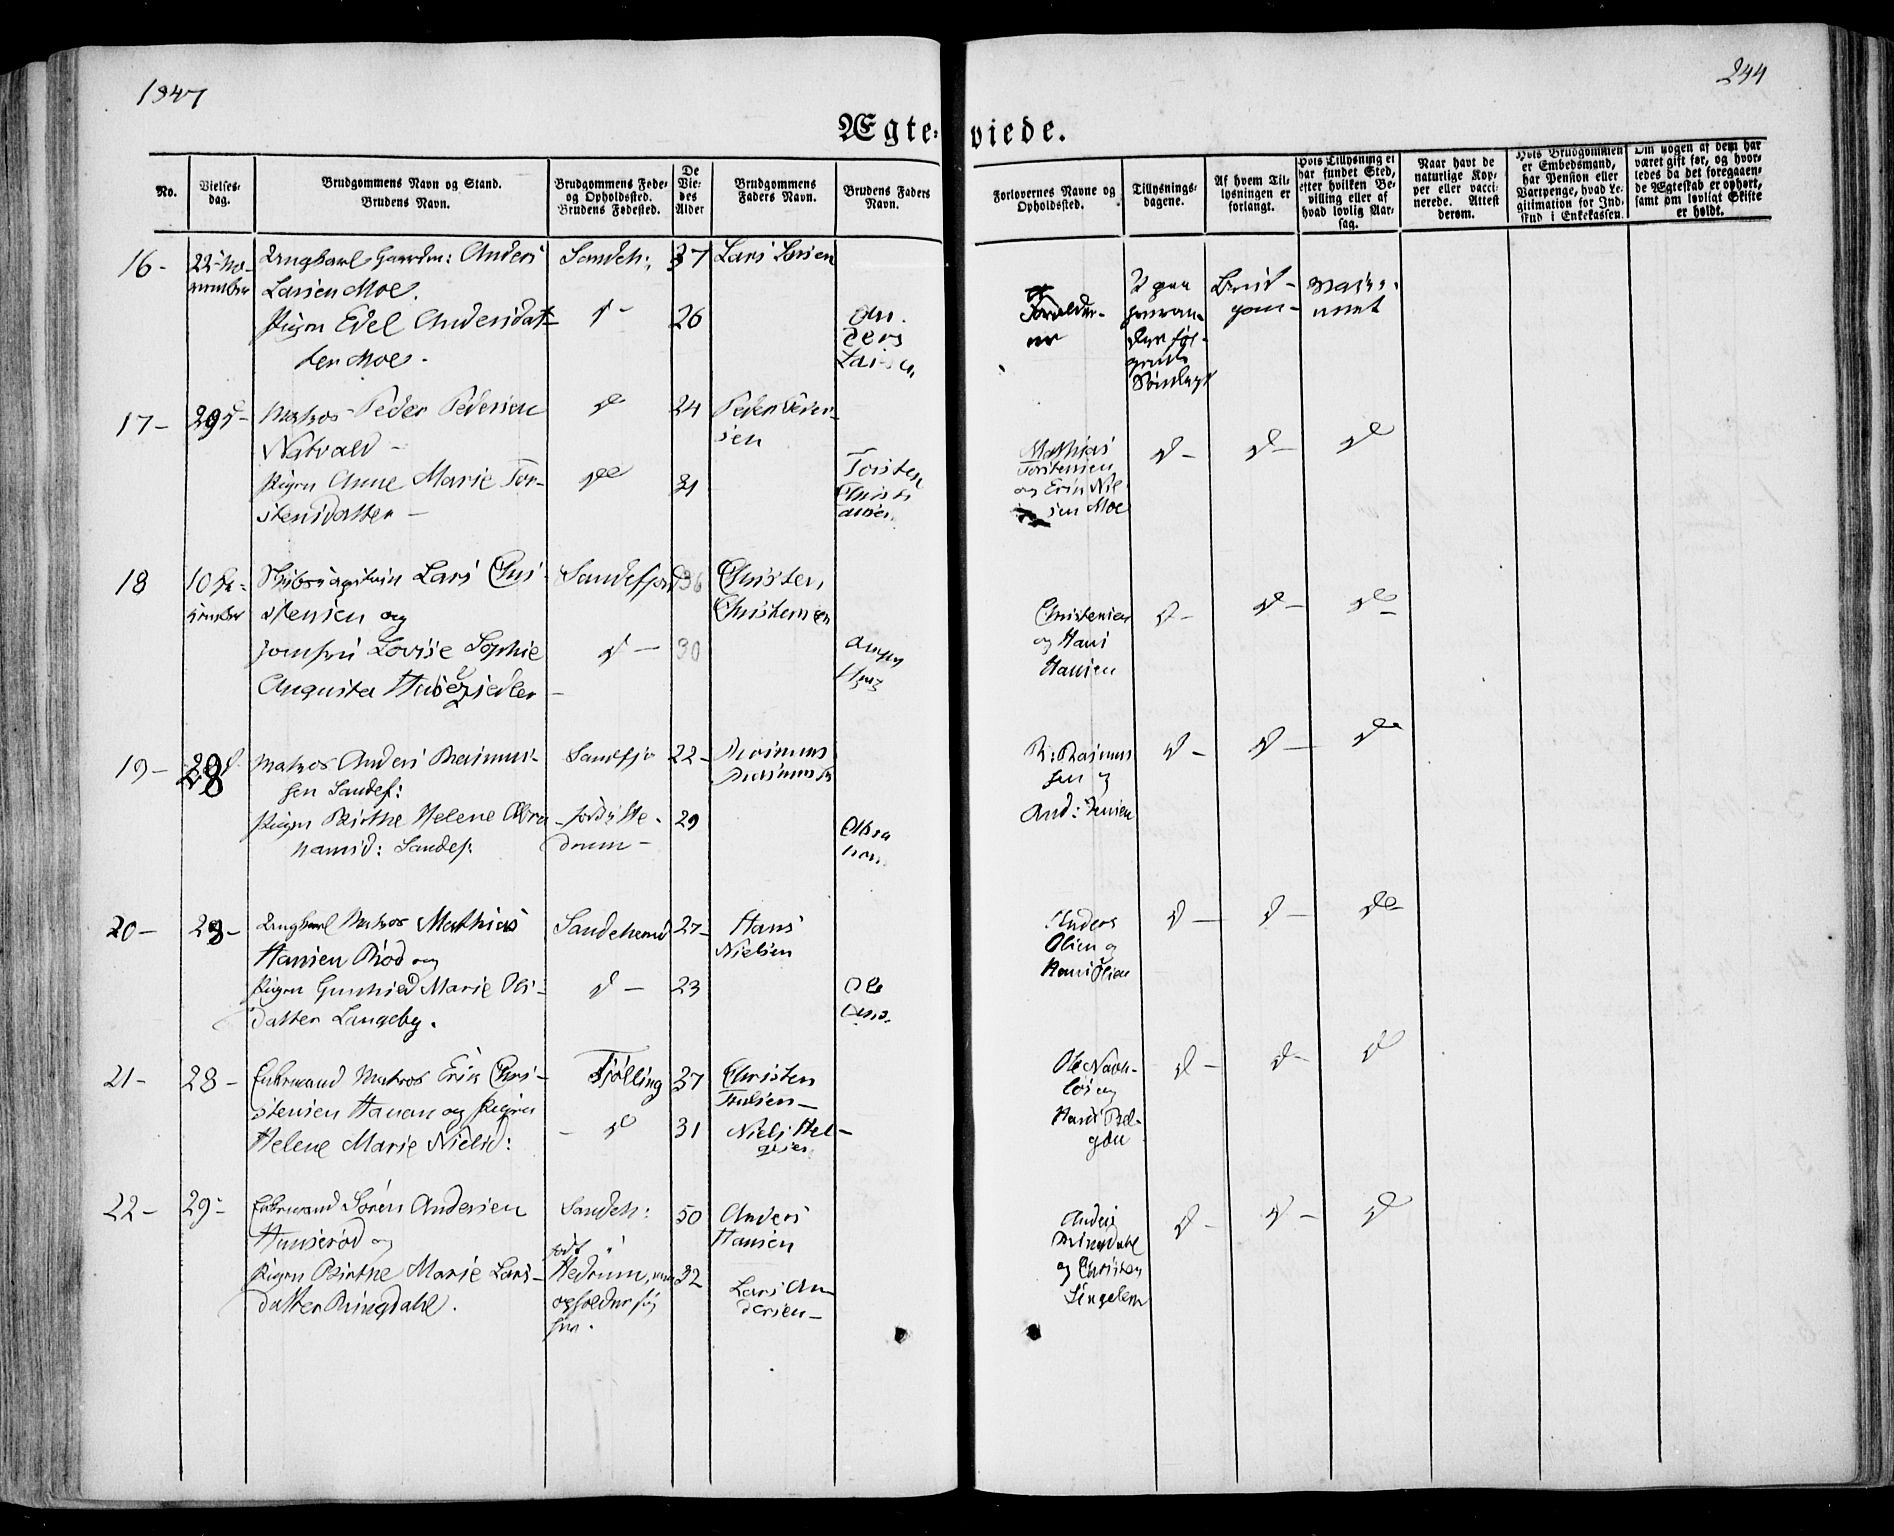 1847
244
Ægte-viede.
No.
Vielses-
dag.
Brudgommens Navn og Stand.
Brudens Navn.
Brudgommens Føde-
og Opholdssted.
Brudens Fødested.
De
Vie-
des
Alder
Brudgommens
Faders Navn.
Brudens Faders
Navn.
Forlovernes Navne og
Opholdssted.
Tillysnings-
dagene.
Af hvem Til-
lysningen er
forlangt.
Hvis Tillysning ei
har fundet Sted,
efter hvilken Be-
villing eller af
hvad lovlig Aar-
sag.
Naar havt de
naturlige Kop-
per eller vacci-
nerede. Attest
derom.
Hvis Brudgommen
er Embedsmand,
har Pension eller
Vartpenge, hvad Le-
gitimation for Ind-
skud i Enkekassen.
Om nogen af dem har
været gift før, og hvor-
ledes da det foregaaen-
de Ægteskab er ophørt,
samt om lovligt Skifte
er holdt.
16- 22- No-
vember
Ungkarl Gaardm: Anders
Larsen Moe.
Pigen Edel Andersdat-
ter Moe.
Sandeh:
d-
37
26
Lars Larsen
An-
ders
Larsen
Forældre-
ne
3 paa
hveran-
dre føl-
gende
Søndage
Brud-
gom-
17- 29 d-
Matros Peder Pedersen
Natvald -
Pigen Anne Marie Tor-
stensdatter -
do
do
24
21
Peder Peder-
sen
Torsten
Christi
ansen
Mathias
Torstensen
og Erik Niel
sen Moe
d- d- do
18 10 De-
cember
Skibscapitain Lars Chri-
stensen og
Jomfru Lovise Sophie
Augusta
Sandefjord
d-
36
30
Christen
Christensen
Christensen
og Hans
Hansen
d- d- do
19- 28
Matros Anders Rasmus-
sen Sandef:
Pigen Birthe Helene Abra
hamsd: Sandef:
Sandefjo
født i He-
drum -
22-
29
Rasmus
Rasmussen
Abra
ham
R: Rasmus
sen og
And: Jensen
d- d- do
20- 28-
Ungkarl Matros Mathias
Hansen Rød og
Pigen Gunhild Marie Ols-
datter Langeby.
Sandeherred
d-
27-
23
Hans
Nielsen
Ole
Anders
Olsen og
Hans Olsen
d- d- do
21- 28-
Enkemand Matros Erik Chri-
stensen Hauan og Pigen
Helene Marie Nielsd:
Tjølling
- d
37
31
Christen
Niels Hel-
gesen
Ole Navn-
løs og
Hans
d- d- d
22- 29-
Enkemand Søren Andersen
Hunserød og
Pigen Birthe Marie Lars-
datter Ringdahl.
Sandeh:
født i
Hedrum, men
opholder sig
her.
50
32
Anders
Hansen
Lars An
dersen -
Anders
Ringdahl
og Christen
d- d- d